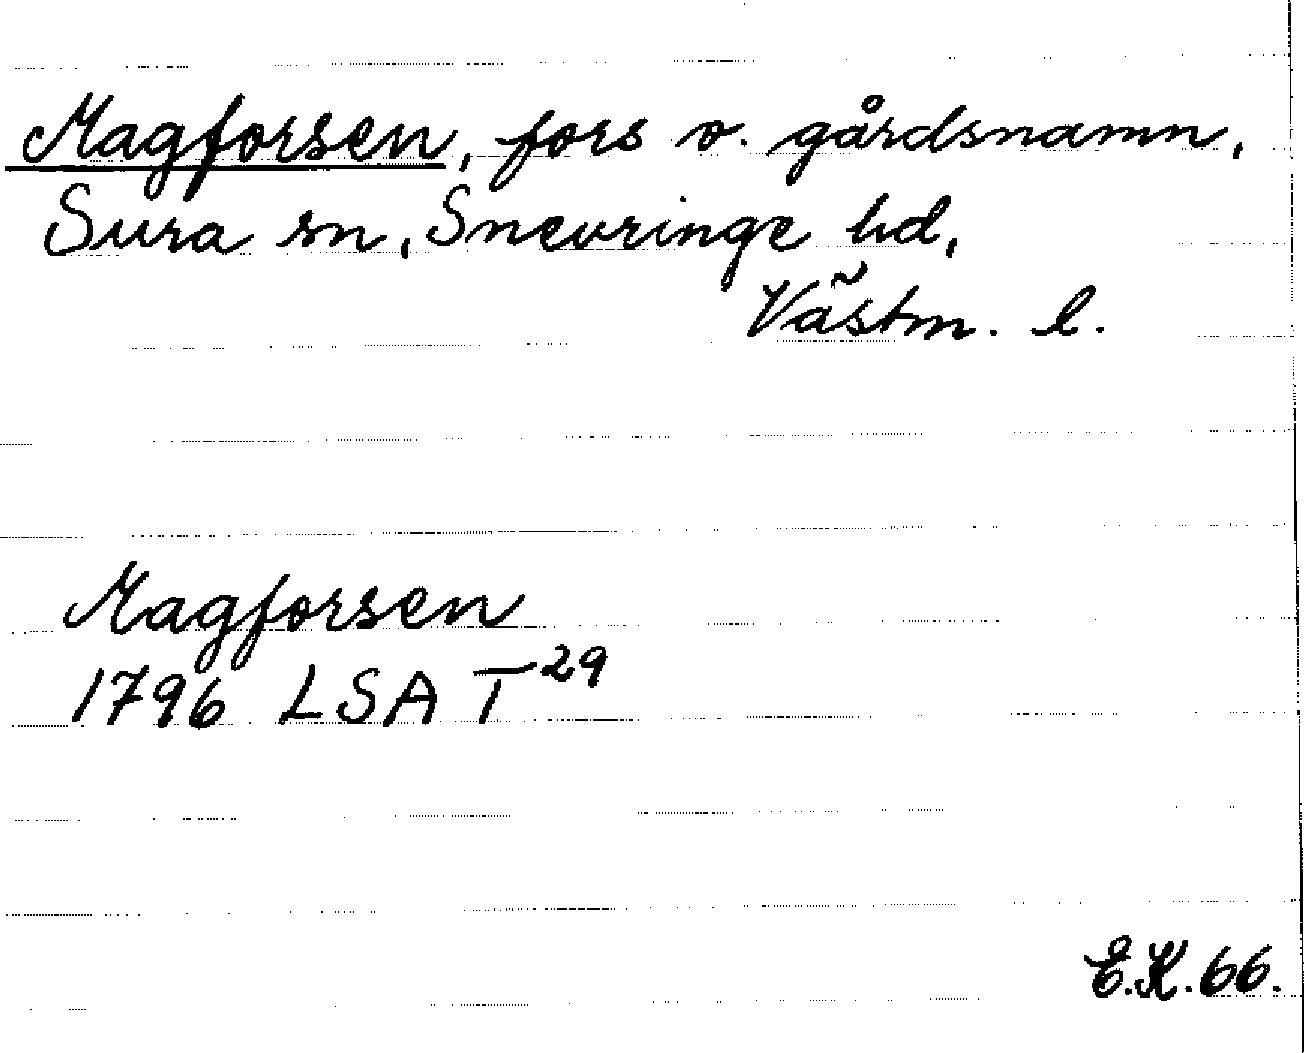 Magforsen, fors o. gårdsnamn,
Sura sn, Snevringe hd,
Västm. l.
Magforsen
1796 LSA T²⁹
E.K. 66.